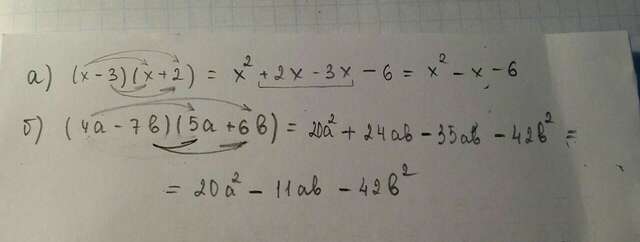 а) (x-3)(x+2) = x² + 2x - 3x - 6 = x² - x - 6
б) (4a - 7b)(5a + 6b) = 20a² + 24ab - 35ab - 42b² =
= 20a² - 11ab - 42b²